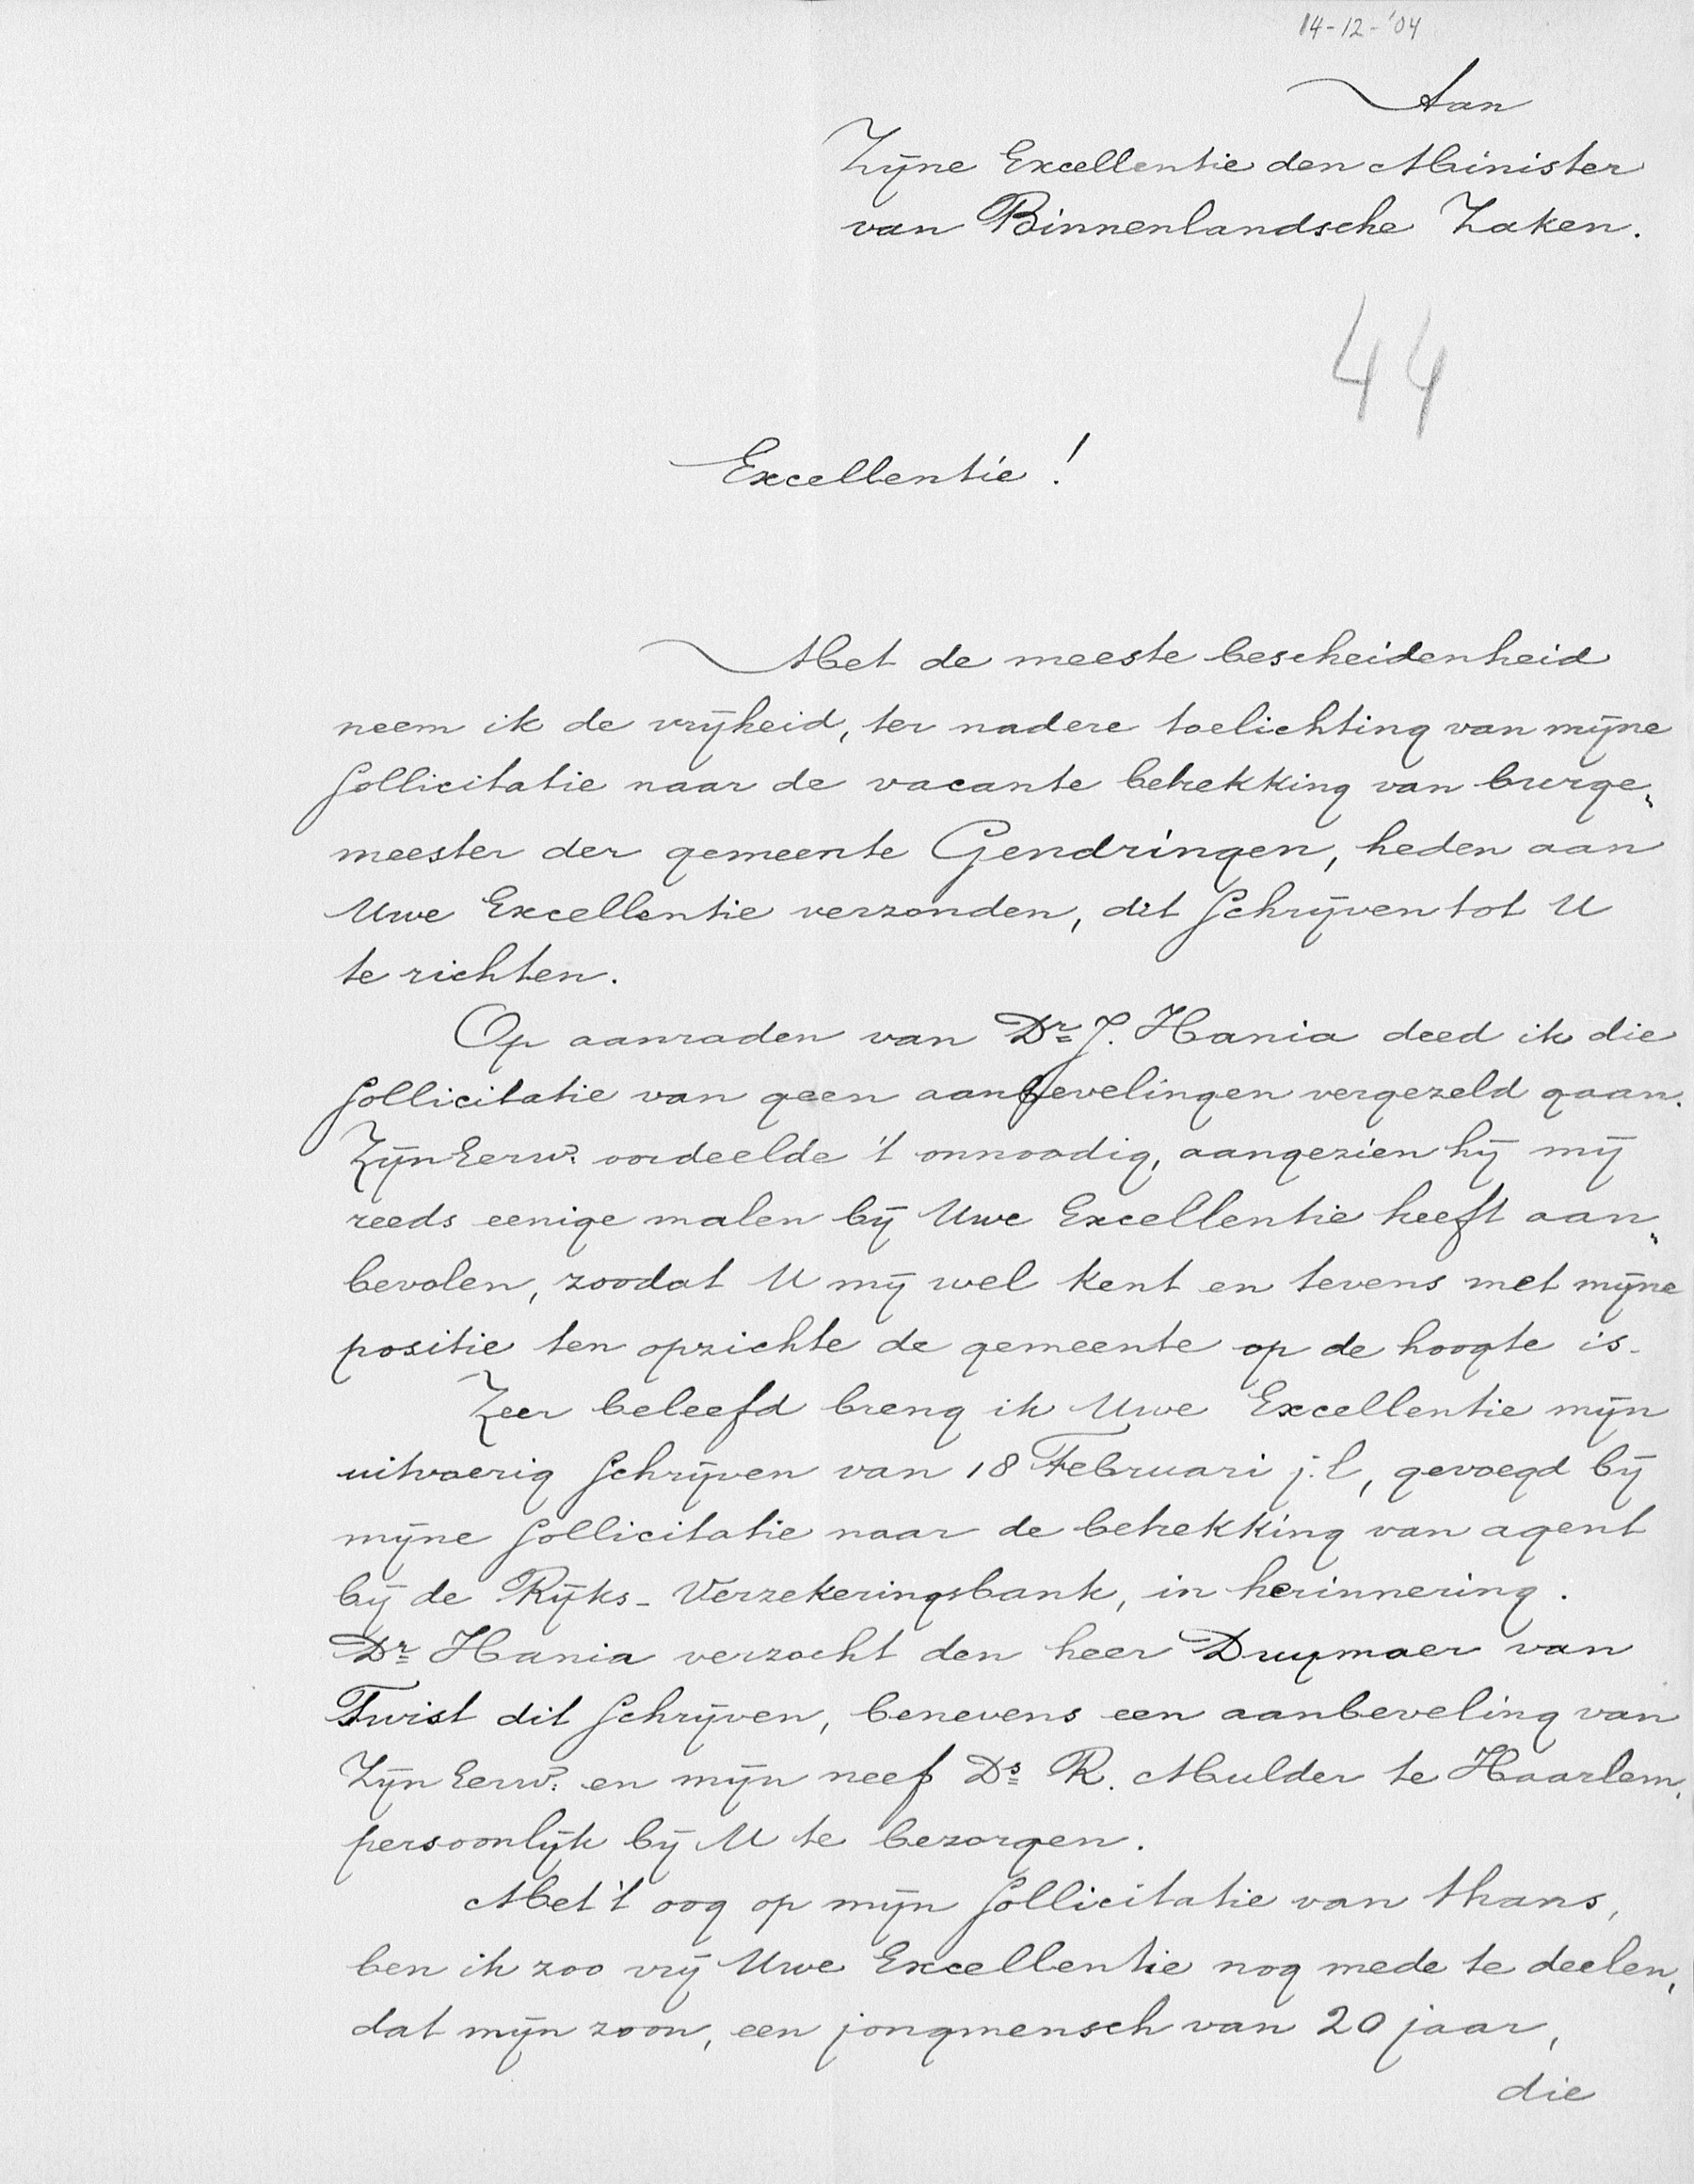 14-12-'04
Aan
Zijne Excellentie den Minister
van Binnenlandsche Zaken.
44
Excellentie!
Met de meeste bescheidenheid
neem ik de vrijheid, ter nadere toelichting van mijne
sollicitatie naar de vacante betrekking van burge„
meester der gemeente Gendringen, heden aan
Uwe Excellentie verzonden, dit schrijven tot U
te richten.
Op aanraden van Dr. J. Hania deed ik die
sollicitatie van geen aanbevelingen vergezeld gaan.
Zijn Eerw. oordeelde 't onnoodig, aangezien hij mij
reeds eenige malen bij Uwe Excellentie heeft aan„
bevolen, zoodat U mij wel kent en tevens met mijne
positie ten opzichte de gemeente op de hoogte is.
Zeer beleefd breng ik Uwe Excellentie mijn
uitvoerig schrijven van 18 Februari j.l, gevoegd bij
mijne sollicitatie naar de betrekking van agent
bij de Rijks-Verzekeringsbank, in herinnering.
Dr. Hania verzocht den heer Duymaer van
Twist dit schrijven, benevens een aanbeveling van
Zijn Eerw. en mijn neef Ds. R. Mulder te Haarlem,
persoonlijk bij U te bezorgen.
Met 't oog op mijn sollicitatie van thans,
ben ik zoo vrij Uwe Excellentie nog mede te deelen,
dat mijn zoon, een jongmensch van 20 jaar,
die